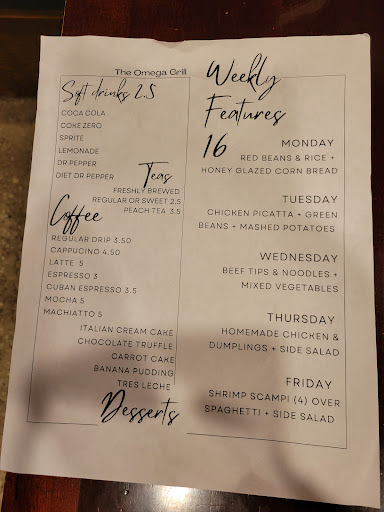 The Omega Grill
Soft drinks 2.5
COCA COLA
COKE ZERO
SPRITE
LEMONADE
DR PEPPER
DIET DR PEPPER
Teas
FRESHLY BREWED
REGULAR OR SWEET 2.5
PEACH TEA 3.5
Coffee
REGULAR DRIP 3.50
CAPPUCINO 4.50
LATTE 5
ESPRESSO 3
CUBAN ESPRESSO 3.5
MOCHA 5
MACHIATTO 5
ITALIAN CREAM CAKE
CHOCOLATE TRUFFLE
CARROT CAKE
BANANA PUDDING
TRES LECHE
Desserts
Weekly
Features
16
MONDAY
RED BEANS & RICE +
HONEY GLAZED CORN BREAD
TUESDAY
CHICKEN PICATTA + GREEN
BEANS + MASHED POTATOES
WEDNESDAY
BEEF TIPS & NOODLES +
MIXED VEGETABLES
THURSDAY
HOMEMADE CHICKEN &
DUMPLINGS + SIDE SALAD
FRIDAY
SHRIMP SCAMPI (4) OVER
SPAGHETTI + SIDE SALAD